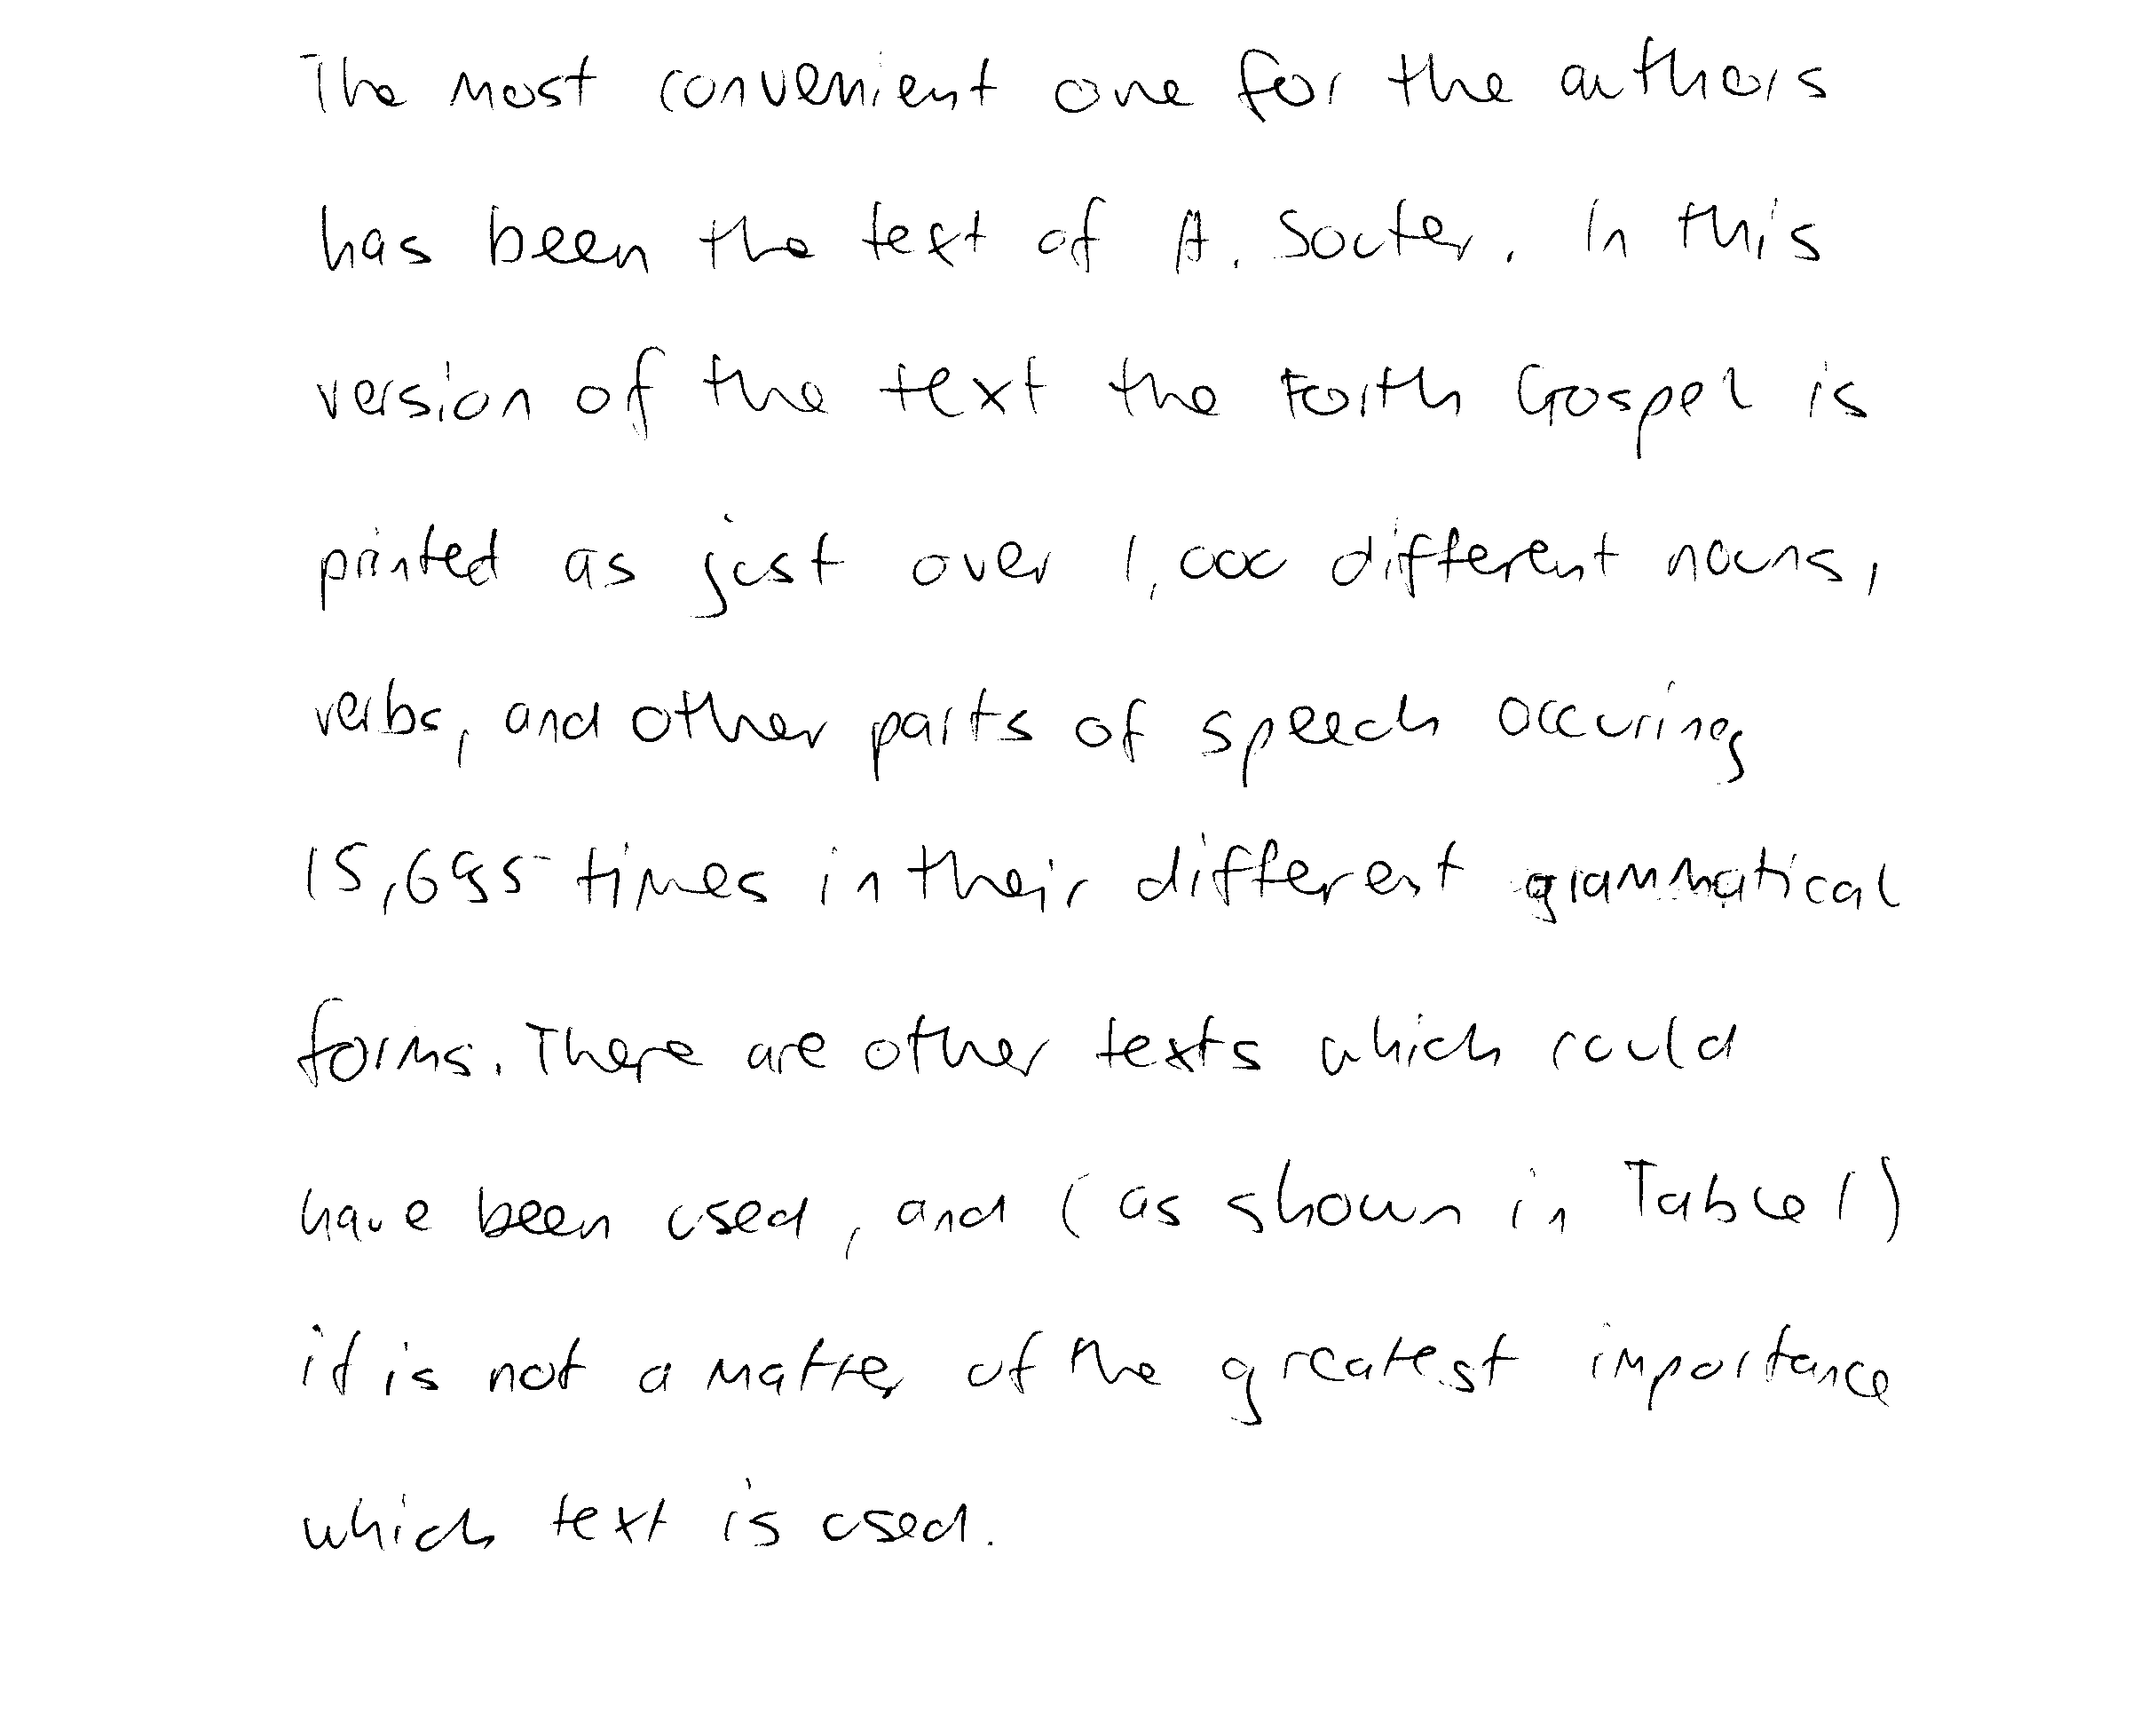 The most convenient one for the authors
has been the text of A. Souter. In this
version of the text the Forth Gospel is
printed as just over 1,000 different nouns,
verbs, and other parts of speech occuring
15,695 times in their different grammatical
forms. There are other texts which could
have been used, and (as shown in Table 1)
it is not a matter of the greatest importance
which text is used.